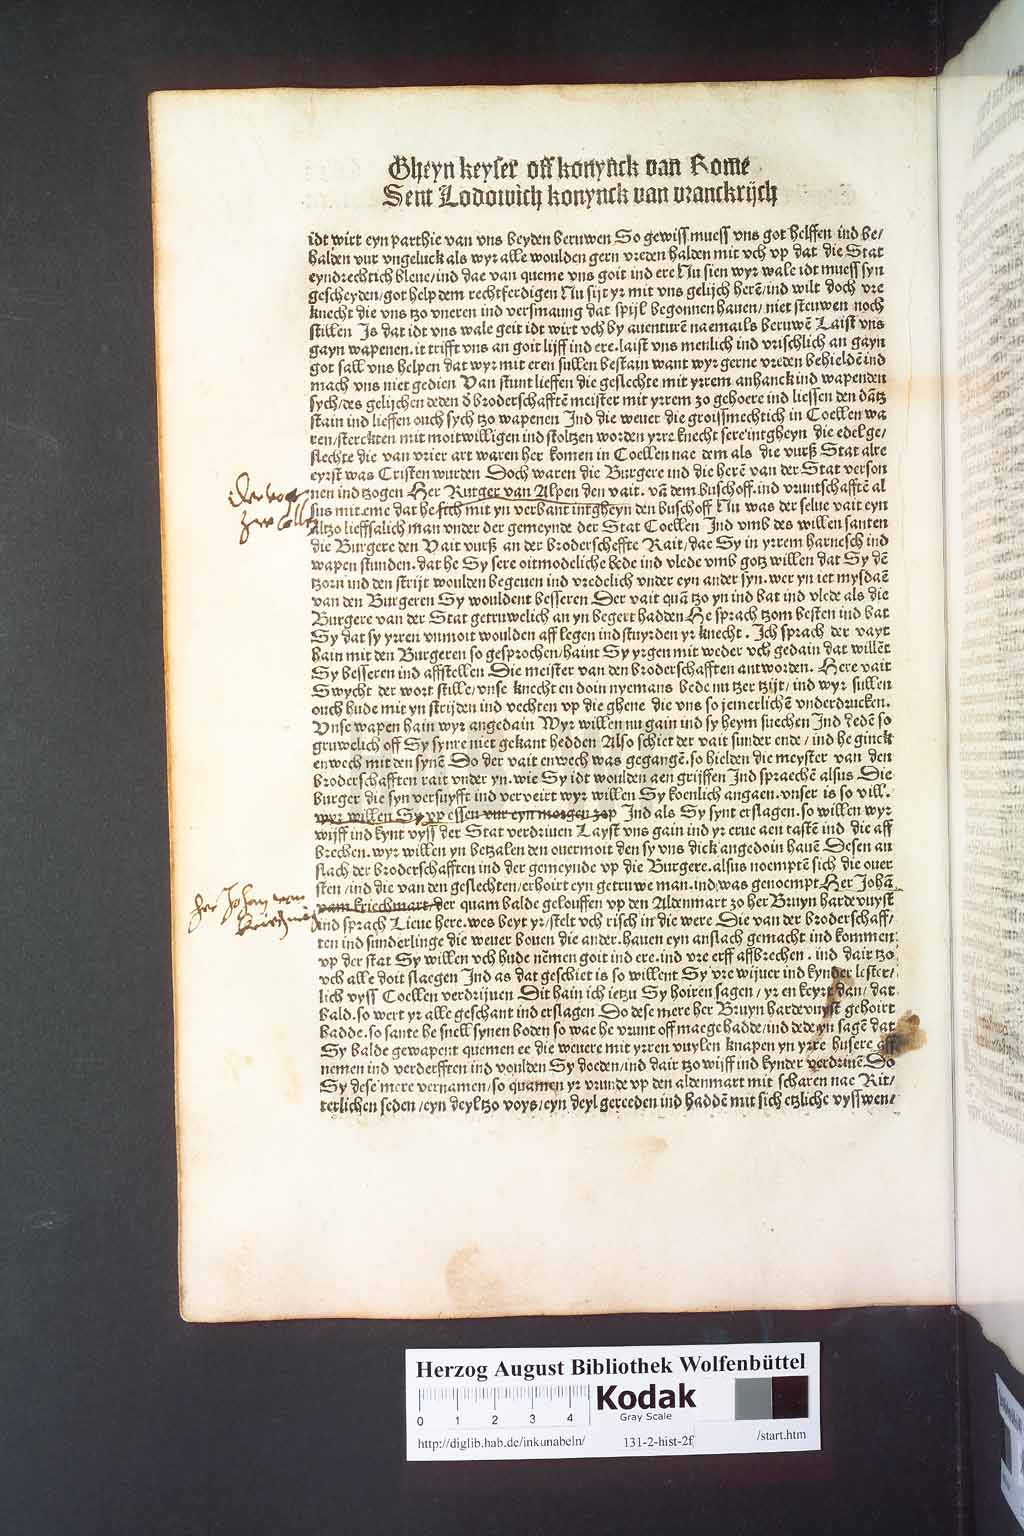 Gheyn keyser off konynck van Rome
Sent Lodowich konynck van vranckrijch
idt wirt eyn parthie van vns beyden beruwen So gewiss muess vns got helffen ind be/
halden vur vngeluck als wyr alle woulden gern vreden halden mit vch vp dat die Stat
eyndrechtich bleue/ind dae van queme vns goit ind ere Nu sien wyr wale idt muess syn
gescheyden/got help dem rechtferdigen Nu sijt yr mit vns gelijch herē/ind wilt doch vre
knecht die vns tzo vneren ind versmaung dat spijl begonnen hauen/niet steuwen noch
stillen Is dat idt vns wale geit idt wirt vch by auenturē naemails beruwē Laist vns
gayn wapenen.it trifft vns an goit lijff ind ere.laist vns menlich ind vrischlich an gayn
got sall vns helpen dat wyr mit eren sullen bestain want wyr gerne vreden behieldē ind
mach vns niet gedien Van stunt lieffen die geslechte mit yrrem anhanck ind wapenden
sych/des gelijchen deden d broderschafftē meister mit yrrem zo gehoere ind liessen den dātz
stain ind lieffen ouch sych tzo wapenen Ind die weuer die groissmechtich in Coellen wa
ren/sterckten mit moitwilligen ind stoltzen worden yrre knecht sere intgheyn die edel ge/
slechte die van vrier art waren her komen in Coellen nae dem als die vurß Stat alre
eyrst was Cristen wurden Doch waren die Burgere ind die herē van der Stat verson
nen ind tzogen Her Rutger van Alpen den vait. vā dem buschoff.ind vruntschafftē al
sus mit eme dat he sich mit yn verbant intgheyn den buschoff Nu was der selue vait eyn
altzo lieffsalich man vnder der gemeynde der Stat Coellen Ind vmb des willen santen
die Burgere den Vait vurß an der broderscheffte Rait/dae Sy in yrrem harnesch ind
wapen stunden.dat he Sy sere oitmodeliche bede ind vlede vmb gotz willen dat Sy dē
tzorn ind den strijt woulden begeuen ind vredelich vnder eyn ander syn.wer yn iet mysdaē
van den Burgeren Sy wouldent besseren Der vait quā tzo yn ind bat ind vlede als die
Burgere van der Stat getruwelich an yn begert hadden He sprach tzom besten ind bat
Sy dat sy yrren vnmoit woulden aff legen ind stuyrden yr knecht. Ich sprach der vayt
hain mit den Burgeren so gesprochen/haint Sy yrgen mit weder vch gedain dat willēt
Sy besseren ind affstellen Die meister van den broderschafften antworden. Here vait
Swycht der wort stille/vnse knecht en doin nyemans bede nu tzer tzijt/ind wyr sullen
ouch hude mit yn strijden ind vechten vp die ghene die vns so jemerlichē vnderdrucken.
Vnse wapen hain wyr angedain Wyr willen nu gain ind sy heym suechen Ind dedē so
gruwelich off Sy synre niet gekant hedden Also schiet der vait sunder ende/ind he ginck
enwech mit den synē Do der vait enwech was gegangē.so hielden die meyster van den
broderschafften rait vnder yn.wie Sy idt woulden aen grijffen Ind spraechē alsus Die
burger die syn versuyfft ind verveirt wyr willen Sy koenlich angaen.vnser is so vill.
wyr willen Sy vp essen vur eyn morgen zop Ind als Sy synt erslagen.so willen wyr
wijff ind kynt vyss der Stat verdriuen Layst vns gain ind yr erue aen tastē ind die aff
brechen.wyr willen yn betzalen den ouermoit den sy vns dick angedoin hauē Desen an
slach der broderschafften ind der gemeynde vp die Burgere.alsus noemptē sich die ouer
sten/ind die van den geslechten/erhoirt eyn getruwe man.ind was genoempt Her Johā
vam kriechmart/der quam balde gelouffen vp den Aldenmart zo her Bruyn hardevuyst
ind sprach Lieue here.wes beyt yr/stelt vch risch in die were Die van der broderschaff/
ten ind sunderlinge die weuer bouen die ander.hauen eyn anslach gemacht ind kommen
vp der stat Sy willen vch hude nēmen goit ind ere.ind vre erff affbrechen. ind dair tzo
vch alle doit slaegen Ind as dat geschiet is so willent Sy vre wijuer ind kynder lester/
lich vyss Coellen verdrijuen Dit hain ich ietzu Sy hoiren sagen/yr en keyrt dan/dat
bald.so wert yr alle geschant ind erslagen Do dese mere her Bruyn hardevuyst gehoirt
hadde.so sante he snell synen boden so wae he vrunt off maege hadde/ind dede yn sagē dat
Sy balde gewapent quemen ee die weuere mit yrren vuylen knapen yn yrre husere aff
nemen ind verderfften ind woulden Sy doeden/ind dair tzo wijff ind kynder verdriuē Do
Sy dese mere vernamen/so quamen yr vrunde vp den aldenmart mit scharen nae Rit/
terlichen seden/eyn deyl tzo voys/eyn deyl gereeden ind haddē mit sich etzliche vysswen/
her Johan vam
Herzog August Bibliothek Wolfenbüttel
0 1 2 3 4
Kodak
Gray Scale
http://diglib.hab.de/inkunabeln/ 131-2-hist-2f /start.htm